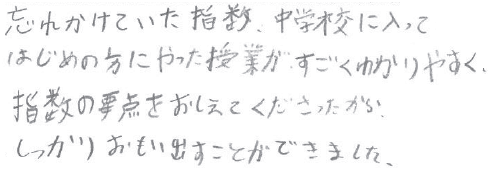 忘れかけていた指数、中学校に入って
はじめの方にやった授業が、すごくゆかりやすく、
指数の要点をおしえてくださったから、
しっかりおもい出すことができました、